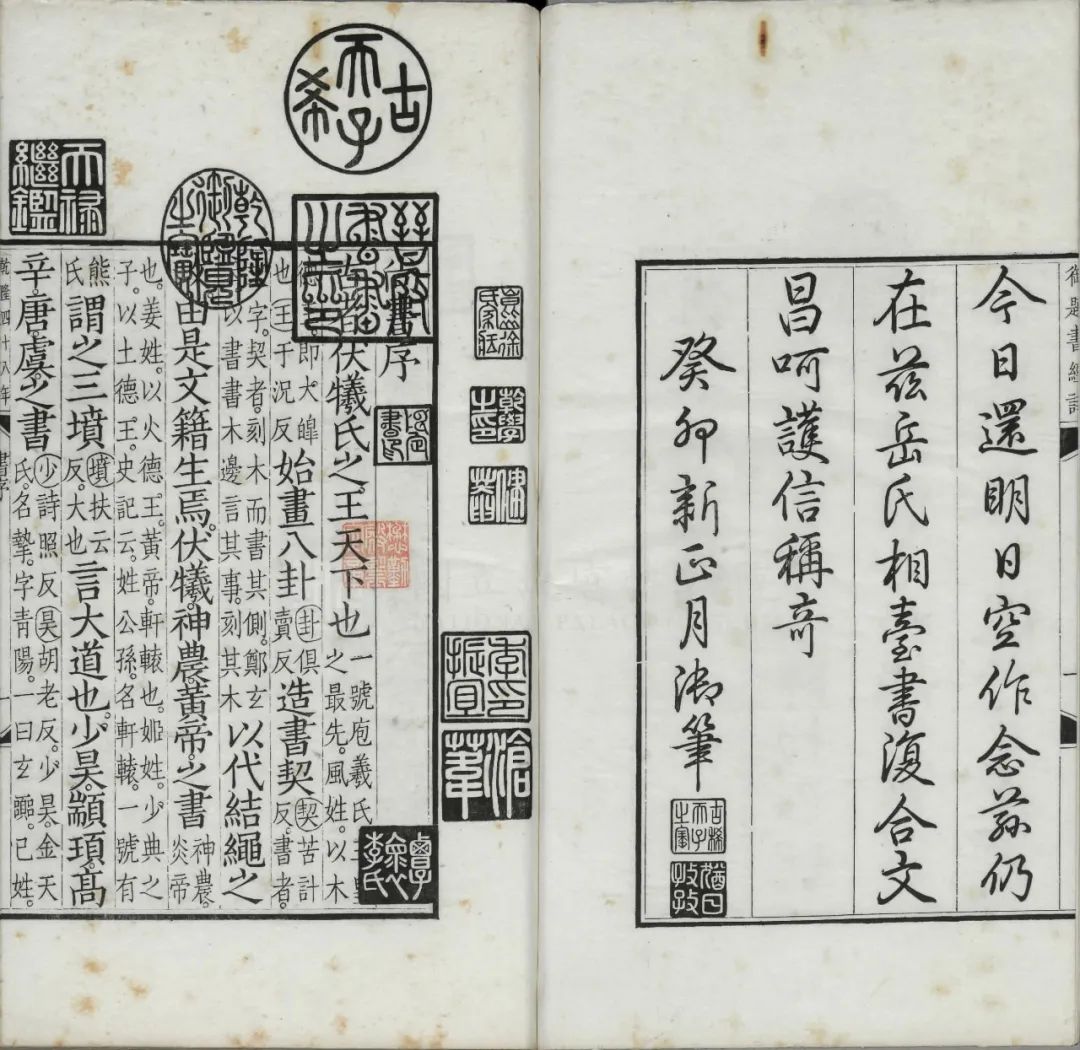 御題書經詩
今日還明日空作念茲仍
在茲岳氏相臺書復合文
昌呵護信稱竒
癸卯新正月御筆
古稀天子之寶
猶日孜孜
乾學之印
季印振宜
滄葦
古希天子
乾隆御覽之寶
天祿繼鑑
書序
伏犧氏之王天下也一號庖羲氏三皇之最先。風姓。以木
德王即太皥也㊣王于況反始畫八卦卦俱賣反造書契契苦計反。書者。
字。契者。刻木而書其側。鄭玄以書書木邊言其事。刻其木以代結繩之
由是文籍生焉。伏犧。神農。黃帝。之書神農。炎帝
也。姜姓。以火德王。黃帝。軒轅也。姬姓。少典之子。以土德王。史記云。姓公孫。名軒轅。一號有
熊氏謂之三墳墳扶云反。大也言大道也。少昊。顓頊。高
辛。唐。虞。之書少詩照反昊胡老反。少昊。金天氏。名摯。字青陽。一曰玄囂。已姓。
乾隆四十八年
書序
一